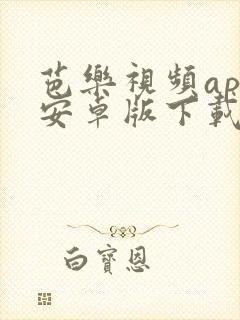 芭樂視頻ap
安卓版下載
白寶恩